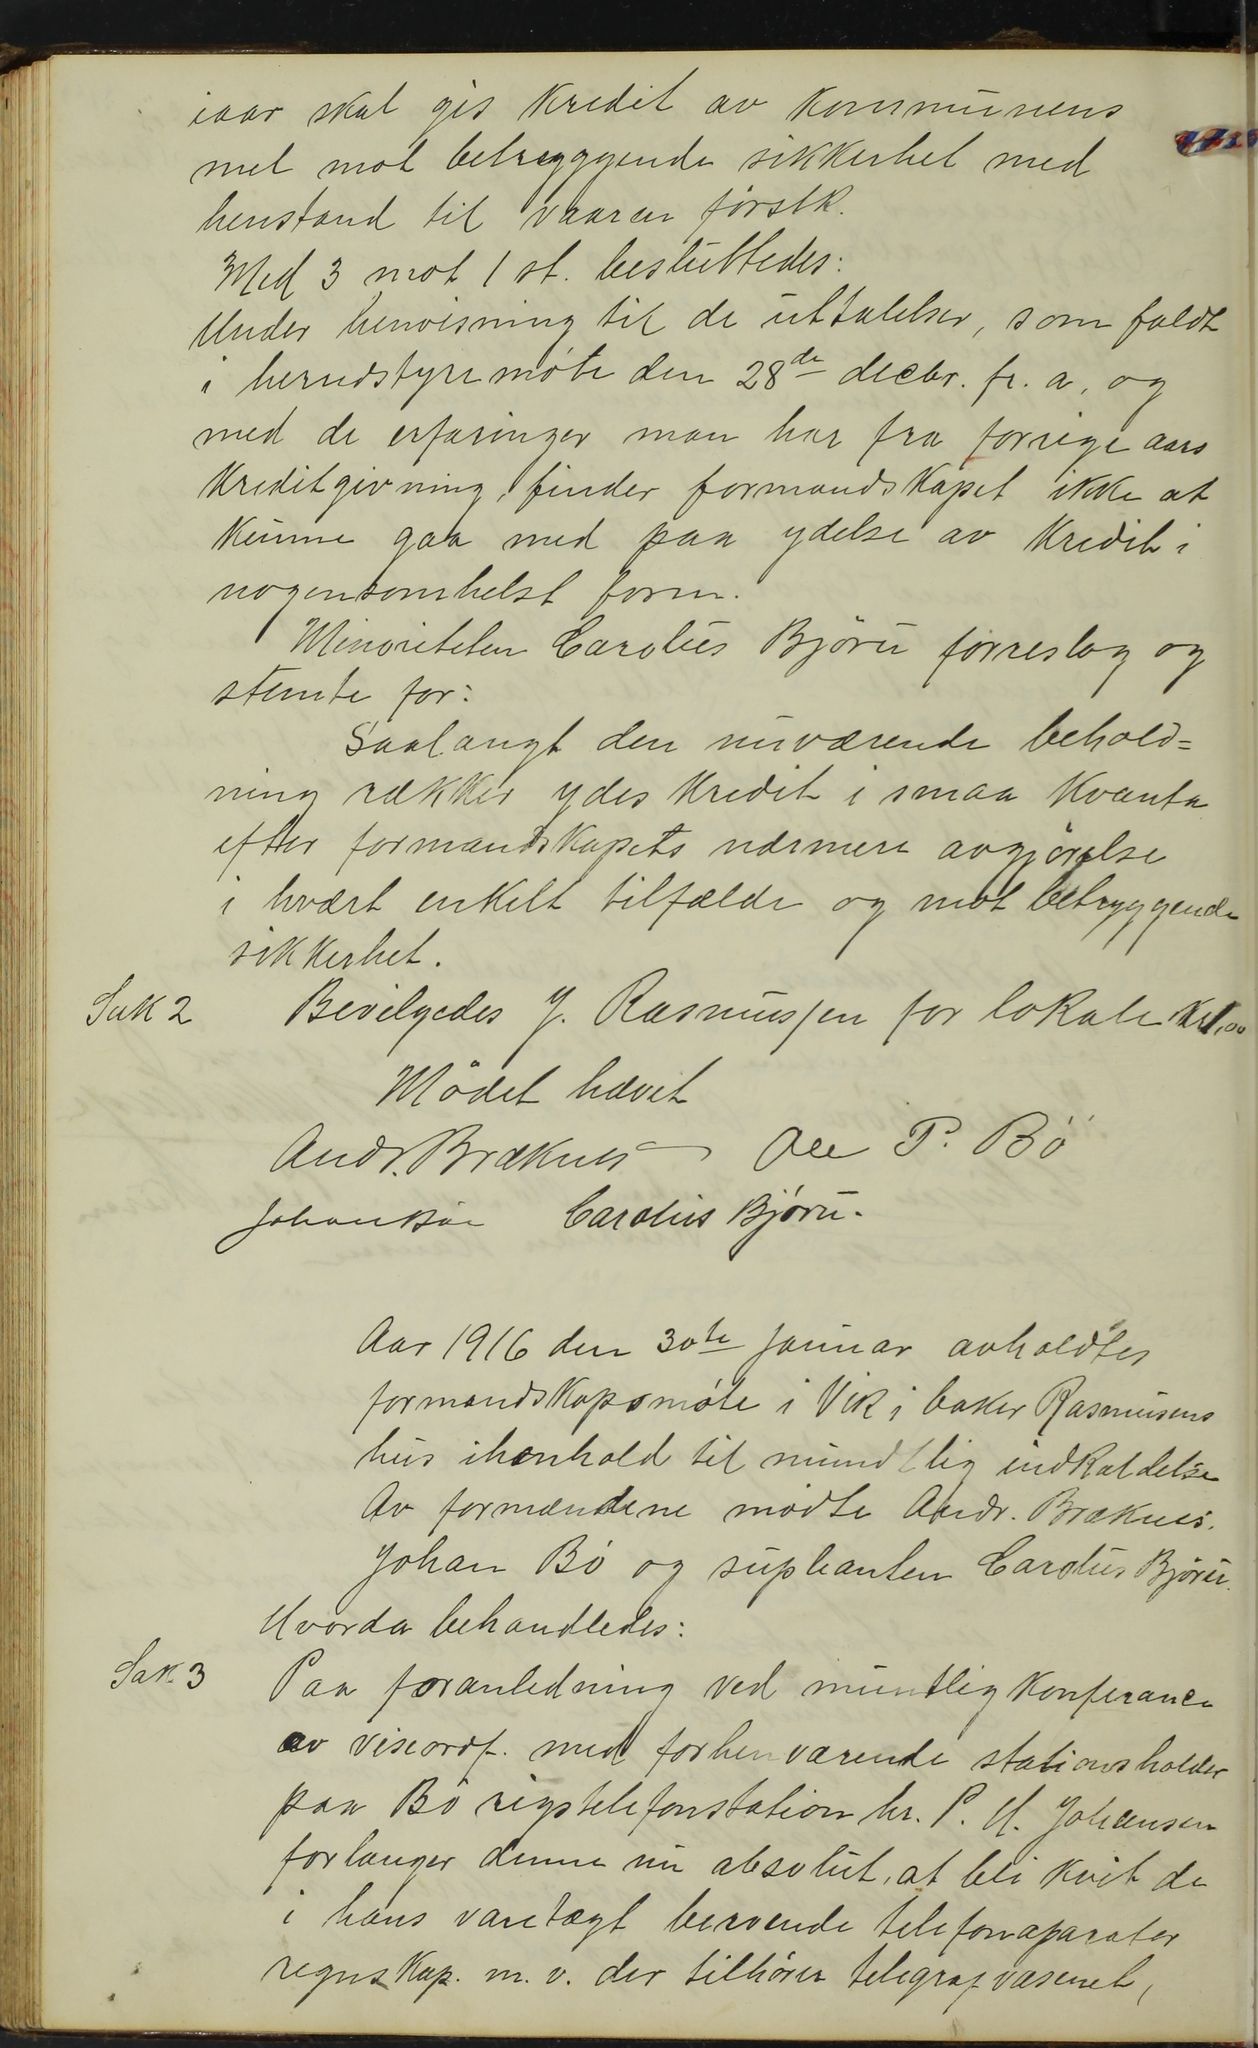 iaar skal gis kredit av kommunens
mel mot betryggende sikkerhet med
henstand til vaaren førstk.
Med 3 mot 1 st. besluttedes:
Under henvisning til de uttalelser, som faldt
i herredstyremøte den 28de decbr. f. a, og
med de erfaringer man har fra forrige aars
kreditgivning, finder formandskapet ikke at
kunne gaa med paa ydelse av kredit i
nogensomhelst form.
Minoriteten Carolius Bjøru forreslog og
stemte for:
Saalangt den nuværende behold=
ning rækker ydes kredit i smaa kvanta
efter formandskapets nærmere avgjørelse
i hvært enkelt tilfælde og mot betryggende
sikkerhet.
Sak 2 Bevilgedes J. Rasmussen for lokale kr 1,00
Mødet hævet
Andr. Bræknes Ole P. Bö
Johan Bö Carolius Bjøru.
Aar 1916 den 30te januar avholdtes
formandskapsmøte i Vik i baker Rasmusens
hus ihenhold til mundtlig indkaldelse
Av formændene mødte Andr. Bræknes.
Johan Bö og supleanten Carolius Bjøru.
Hvorda behandledes:
Sak 3 Paa foranledning ved muntlig konferance
av viseordf. med forhenværende stationsholder
paa Bö rigstelefonstation hr. P. H. Johansen
forlanger denne nu absolut, at bli kvit de
i hans varetægt beroende telefonaparater
regnskap. m. v. der tilhører telegrafvæsenet,